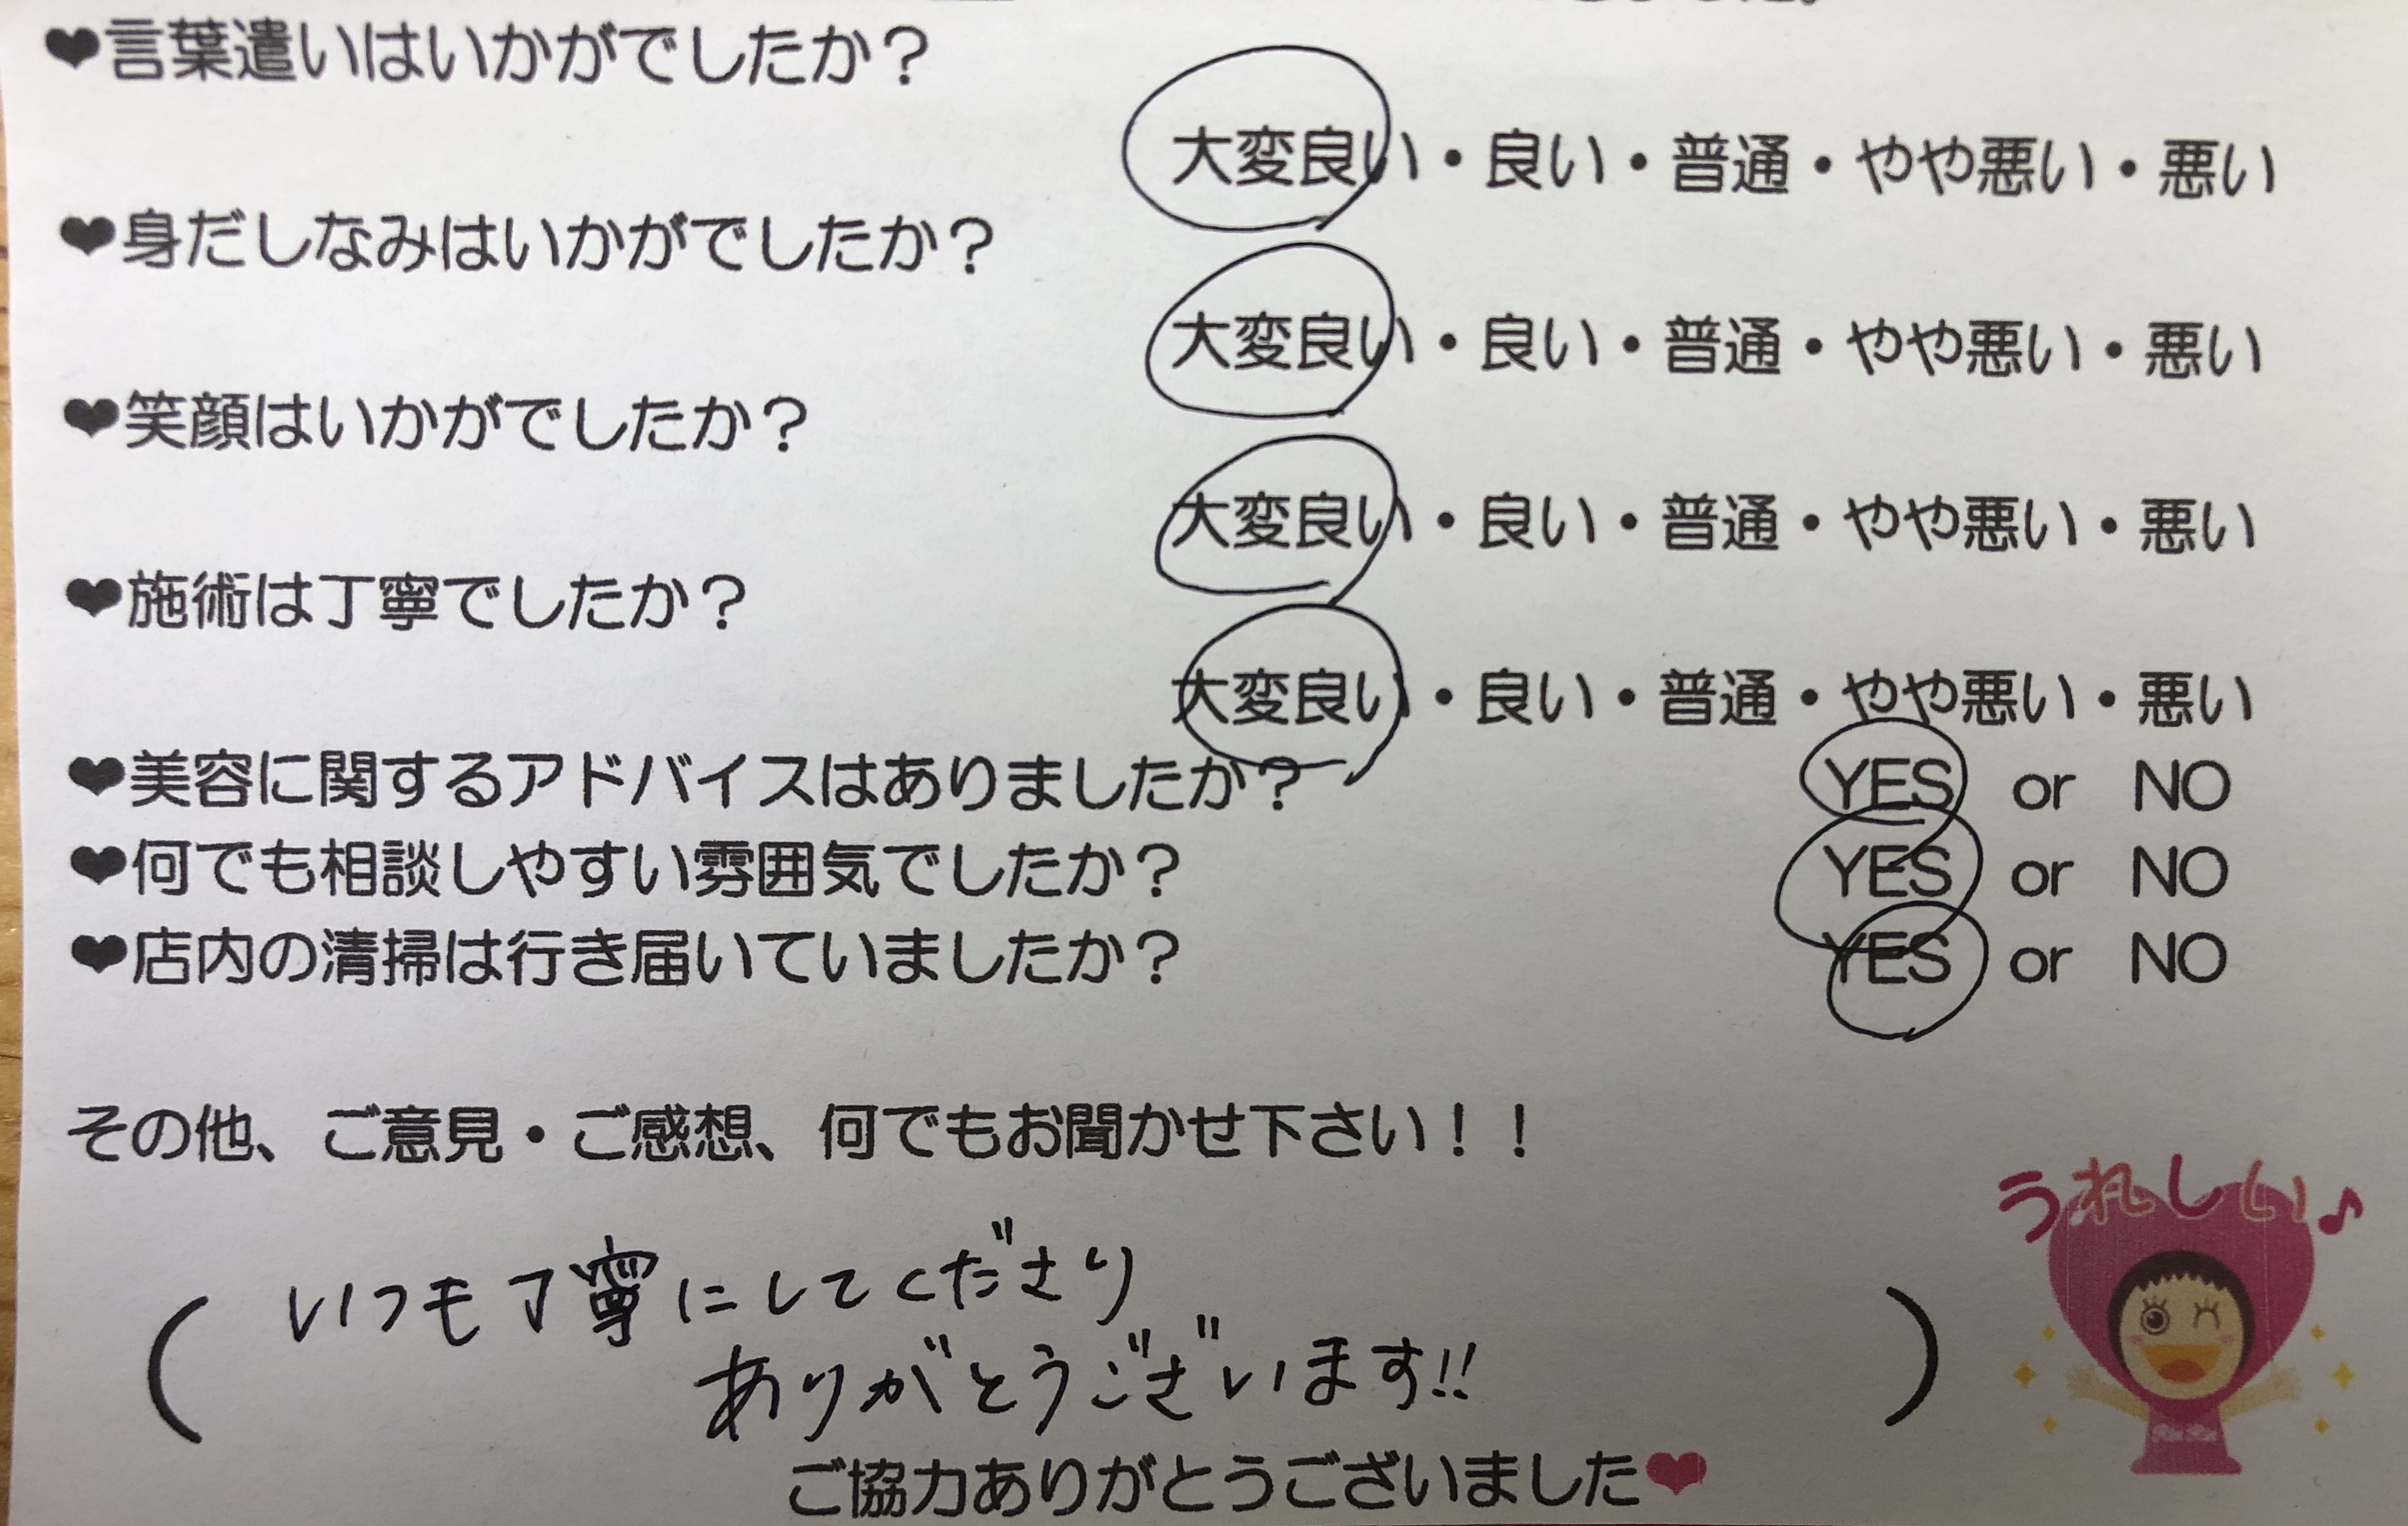 ❤言葉遣いはいかがでしたか？
大変良い・良い・普通・やや悪い・悪い
❤身だしなみはいかがでしたか？
大変良い・良い・普通・やや悪い・悪い
❤笑顔はいかがでしたか？
大変良い・良い・普通・やや悪い・悪い
❤施術は丁寧でしたか？
大変良い・良い・普通・やや悪い・悪い
❤美容に関するアドバイスはありましたか？ YES or NO
❤何でも相談しやすい雰囲気でしたか？ YES or NO
❤店内の清掃は行き届いていましたか？ YES or NO
その他、ご意見・ご感想、何でもお聞かせ下さい！！
うれしい♪
（いつも丁寧にしてくださり
ありがとうございます!!）
ご協力ありがとうございました❤